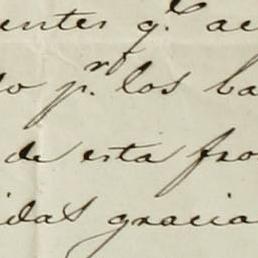 entes q.e ac
do p.r los ba
de esta fro
idas gracia